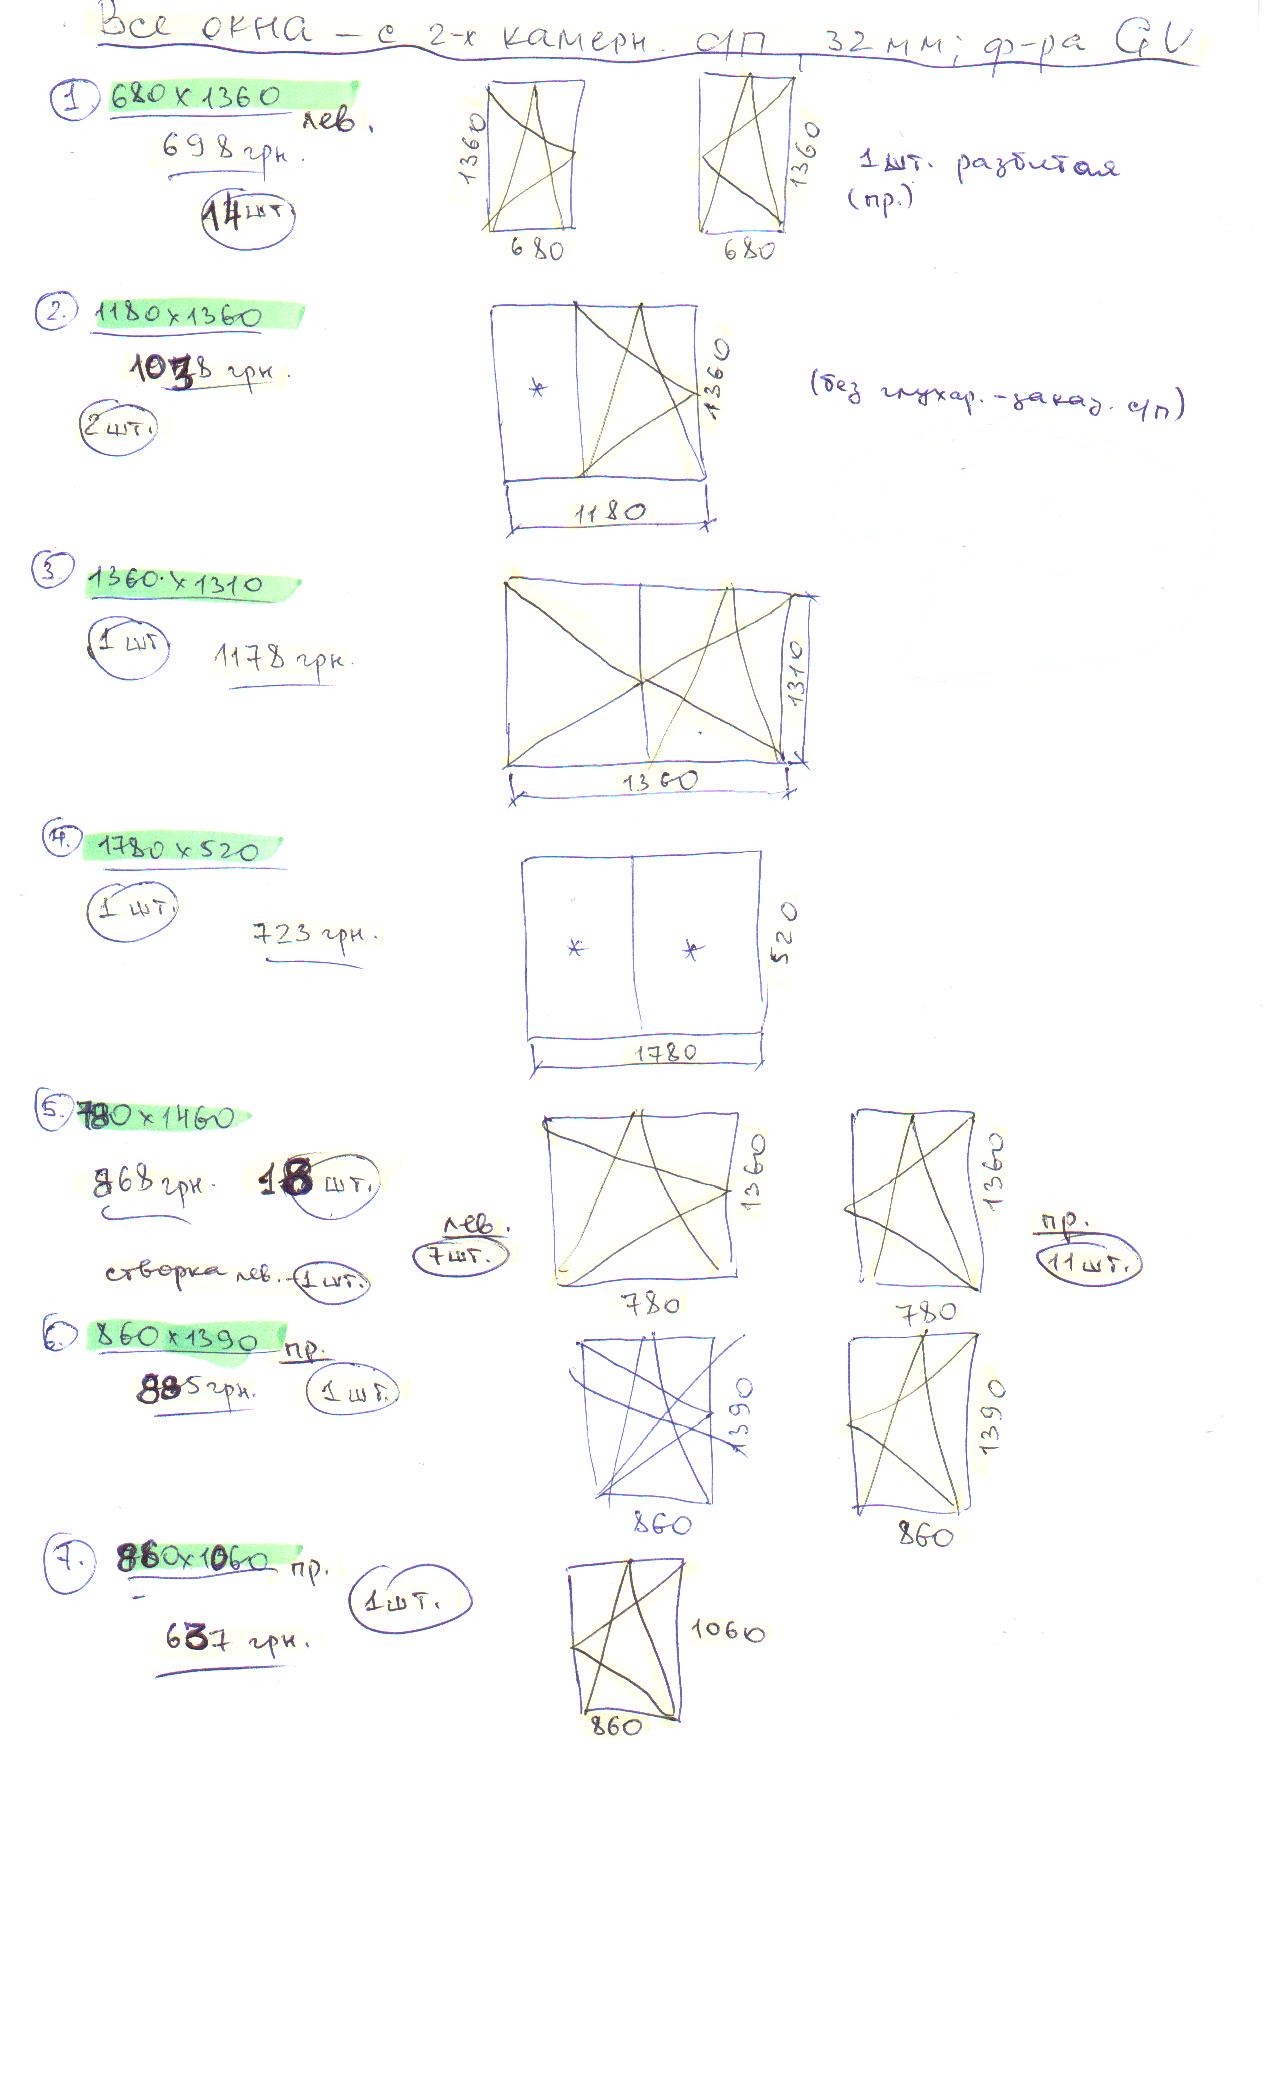 Все окна – с 2-х камерн. с/п 32 мм; ф-ра GU
1. 680 х 1360 лев.
698 грн.
14 шт.
1360
680
1360
680
1 шт. разбитая
(пр.)
2. 1180 х 1360
1038 грн.
2 шт.
*
1360
1180
(без глухар. – заказ. с/п)
3. 1360 х 1310
1 шт
1178 грн.
1310
1360
4. 1780 х 520
1 шт.
723 грн.
* *
520
1780
5. 780 х 1460
868 грн. 18 шт.
створка лев. – 1 шт.
лев.
7 шт.
1360
780
1360
780
пр.
11 шт.
6. 860 х 1390 пр.
885 грн. 1 шт.
1390
860
1390
860
7. 860х1060 пр.
1 шт.
637 грн.
1060
860